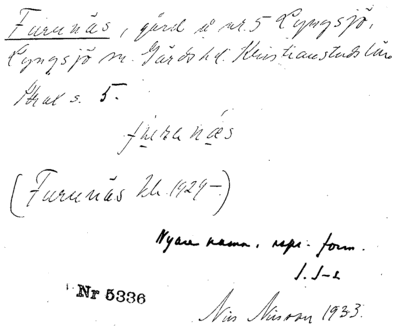 Furunäs, gård å nr. 5 Lyngsjö,
Lyngsjö sn. Gärds hd. Kristianstads län
s. 5.
furunäs
(Furunäs Jb. 1929–)
Nyare namn, rspr. form.
Nr 5336
Nils Nilsson 1933.